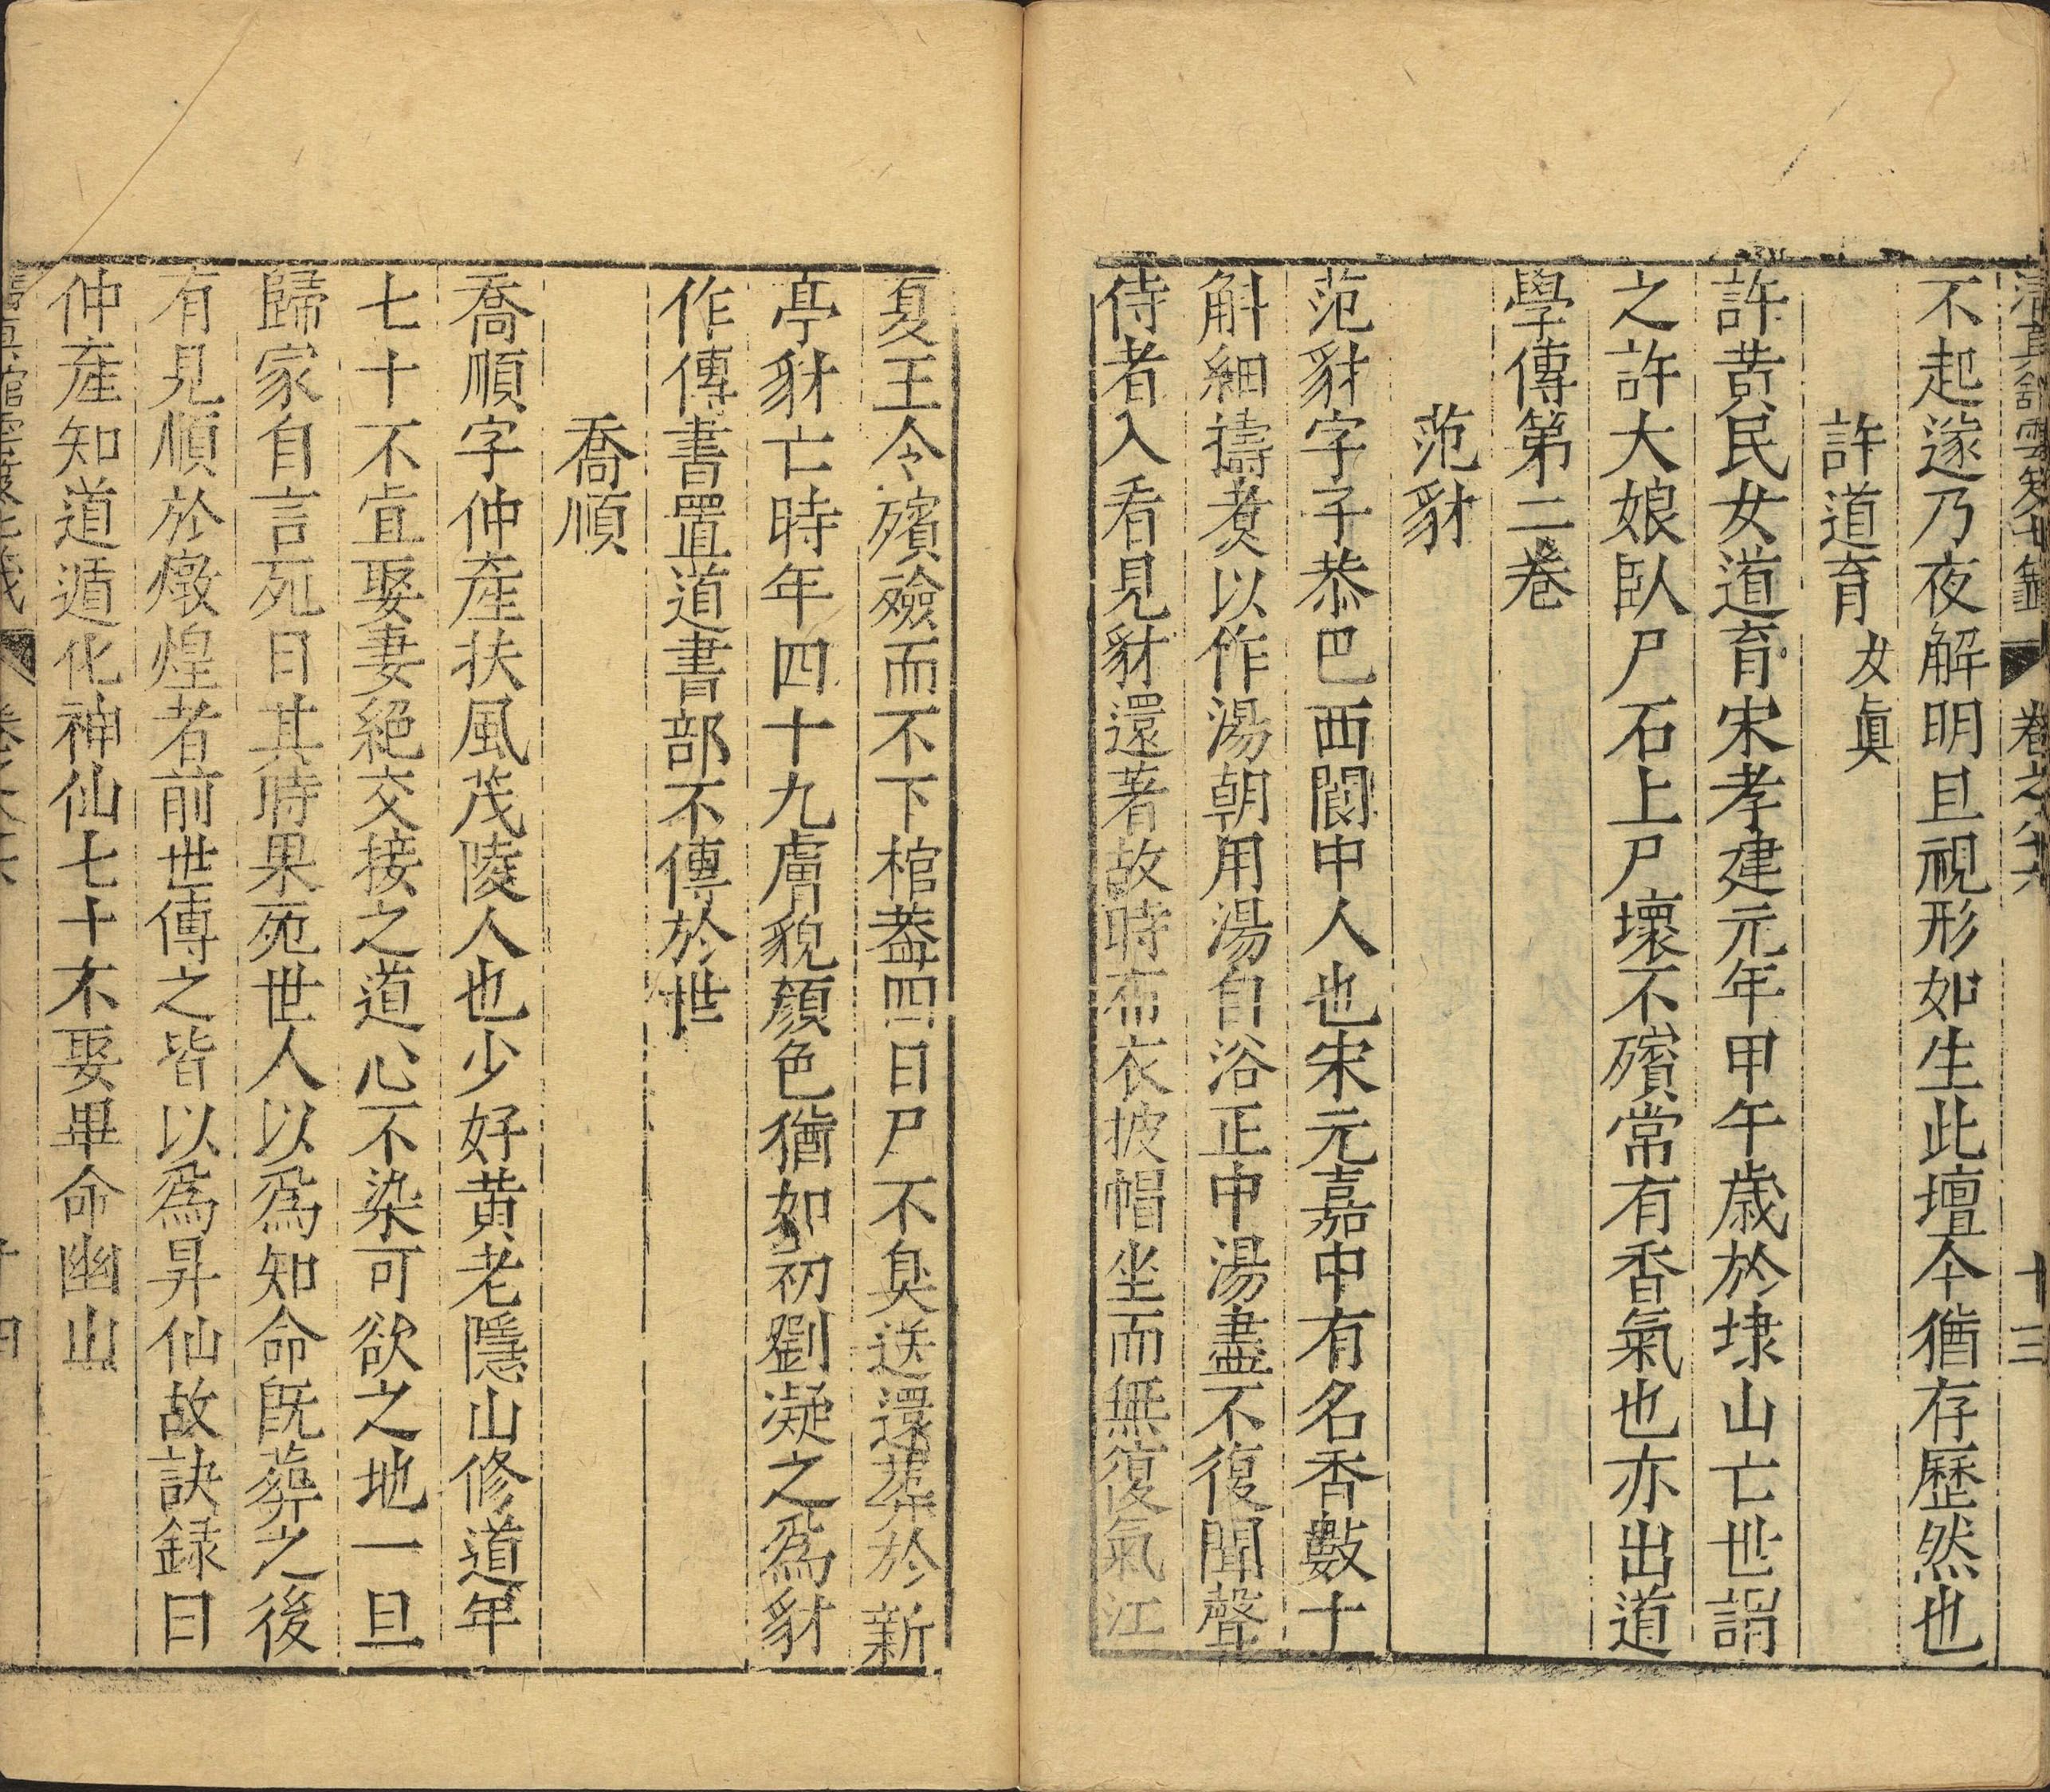 清真館雲笈七籤 卷之八十六 十三
不起遂乃夜解明旦視形如生此壇今猶存歷然也
許道育 女眞
許黃民女道育宋孝建元年甲午歲於埭山亡世謂
之許大娘臥尸石上尸壞不殯常有香氣也亦出道
學傳第二卷
范豺
范豺字子恭巴西閬中人也宋元嘉中有名香數十
斛細擣煑以作湯朝用湯自浴正中湯盡不復聞聲
侍者入看見豺還著故時布衣披帽坐而無復氣江
夏王令殯殮而不下棺葢四日尸不臭送還葬於新
亭豺亡時年四十九膚貌顔色猶如初劉凝之爲豺
作傳書置道書部不傳於世
喬順
喬順字仲產扶風茂陵人也少好黃老隱山修道年
七十不肯娶妻絕交接之道心不染可欲之地一旦
歸家自言死日其時果死世人以爲知命旣葬之後
有見順於燉煌者前世傳之皆以爲昇仙故訣録曰
仲產知道遁化神仙七十不娶畢命幽山